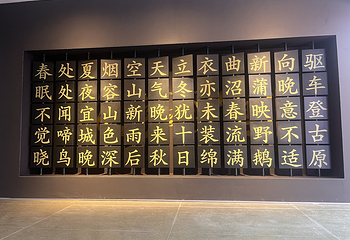 春眠不觉晓
处处闻啼鸟
夏夜宜城晚
烟容山色深
空山新雨后
天气晚来秋
立冬犹十日
衣亦未装绵
曲沼春流满
新蒲映野鹅
向晚意不适
驱车登古原